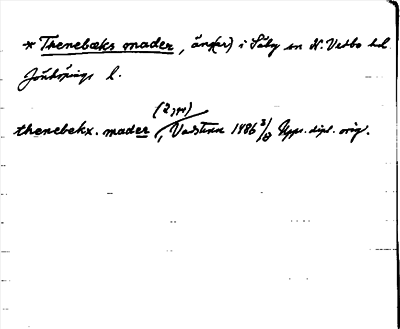 * Thenebæks mader, äng(ar) i Säby sn N. Vedbo hd.
Jönköpings l.
(2 ggr)
thenebekx. mader, Vadstena 1486 3/8 Upps. dipl. orig.